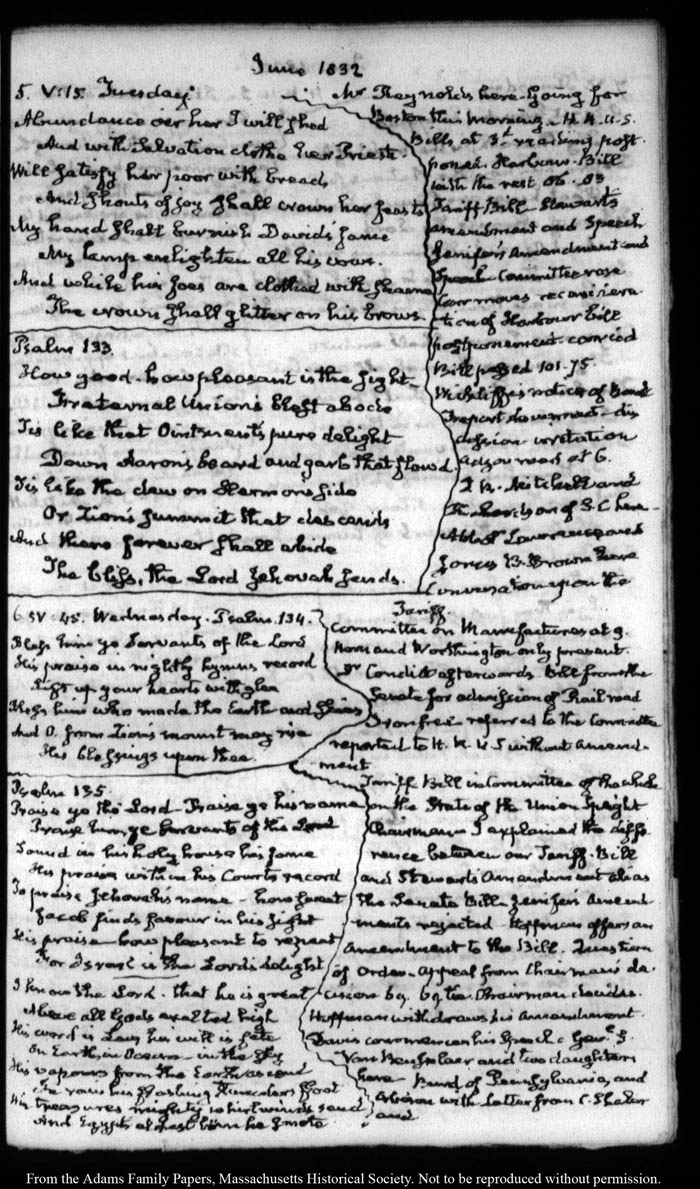 June 1832
5. V:15. Tuesday
Abundance o'er her I will shed
And with Salvation clothe her Priests
Will satisfy her poor with bread
And shouts of joy shall crown her feasts
My hand shall burnish David's fame
My lamp enlighten all his vows.
And while his foes are clothed with shame
The crown shall glitter on his brows.
Psalm 133.
How good. how pleasant is the sight
Fraternal Union's blest abode
Tis like that Ointment's pure delight
Down Aaron's beard and garb that flow'd.
Tis like the dew on Hermon's side
Or Zion's summit that descends
And there forever shall abide
The bliss, the Lord Jehovah sends.
Mr Reynolds here. Going for
Boston this morning. H. R. U.S.
Bills at 3d reading post-
poned. Harbour Bill
with the rest 86. 83
Tariff Bill Stewart's
amendment and Speech
Jenifer's Amendment and
Speech Committee rose
moves reconsidera-
tion of Harbour bill
postponement. carried
Bill passed 101-75.
Wickliffe's notice of Bank
report
at 6.
Mitchell and
of S.C here
Abbot Lawrence and
James B. Brown here
Conversation upon the
Tariff.
6 IV:45. Wednesday. Psalm. 134.
Bless him ye Servants of the Lord
His praise in nightly hymns record
Lift up your hearts with glee
Bless him who made the Earth and Skies
And O. from Zion's mount may rise
His blessings upon thee.
Committee on Manufactures at 9.
Horn and Worthington only present.
Dr Condict afterwards. Bill from the
Senate for admission of Rail road
Iron free referred to the Committee
reported to H. R. U S without amend-
ment
Psalm 135.
Praise ye the Lord. Praise ye his name
Praise him, ye Servants of the Lord
Sound in his holy house his fame
His praise within his Courts record
To praise Jehovah's name - how sweet
Jacob finds favour in his sight
His praise - how pleasant to repeat
For Israel is the Lord's delight
I know the Lord. that he is great
Above all Gods exalted high
His word is Law, his will is fate
On Earth, in Ocean - in the sky
His vapours from the Earth ascend
The rain his flashing thunders
His treasures mighty whirlwinds send
And Egypt's first born he smote
Tariff Bill in Committee of the whole
on the State of the Union Speight
Chairman. I explained the diffe-
rence between our Tariff. Bill
and Stewart's Amendment alias
the Senate Bill. Jenifer's Amend-
ments rejected Hoffman offers an
amendment to the Bill. Question
of Order. Appeal from Chairman's de-
cision by. by the Chairman decides.
Hoffman withdraws his Amendment.
Davis commences his Speech. Genl S.
Van Rensselaer and two daughters
here of Pennsylvania, and
with Letter from C. Shaler
and